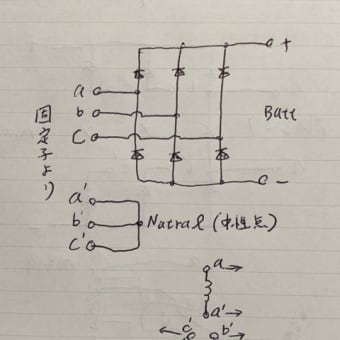 +
a
b
Batt
C
固定子より
-
a'
b'
Natral (中性点)
c'
a
a'
c'
b'